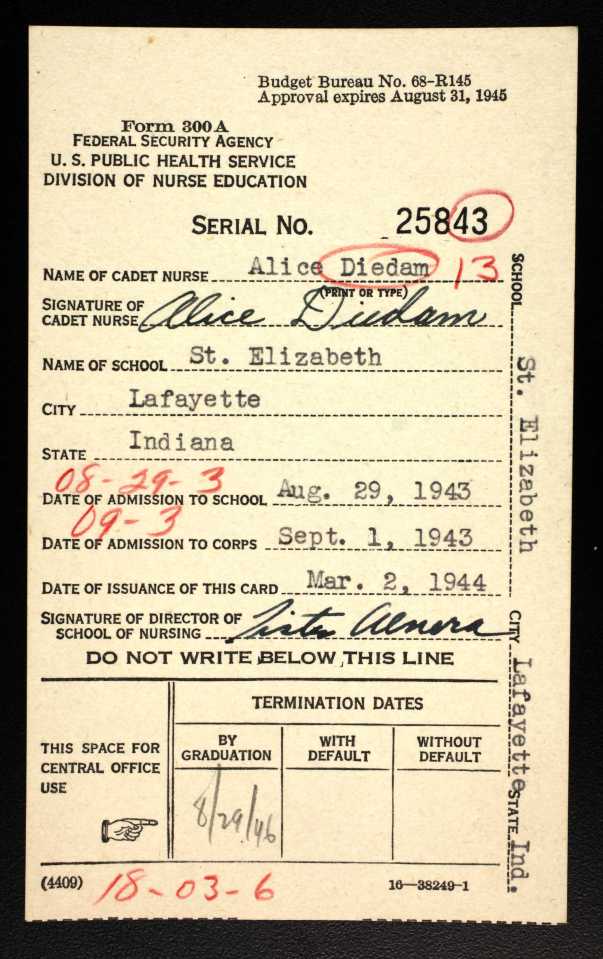 Budget Bureau No. 68-R145
Approval expires August 31, 1945
Form 300A
FEDERAL SECURITY AGENCY
U. S. PUBLIC HEALTH SERVICE
DIVISION OF NURSE EDUCATION
SERIAL NO. 25843
NAME OF CADET NURSE Alice Diedam 13
(PRINT OR TYPE)
SIGNATURE OF
CADET NURSE Alice Diedam
NAME OF SCHOOL St. Elizabeth
CITY Lafayette
STATE Indiana
08-29-3
DATE OF ADMISSION TO SCHOOL Aug. 29, 1943
09-3
DATE OF ADMISSION TO CORPS Sept. 1, 1943
DATE OF ISSUANCE OF THIS CARD Mar. 2, 1944
SIGNATURE OF DIRECTOR OF
SCHOOL OF NURSING Sister
DO NOT WRITE BELOW THIS LINE
THIS SPACE FOR
CENTRAL OFFICE
USE
TERMINATION DATES
BY
GRADUATION
WITH
DEFAULT
WITHOUT
DEFAULT
8/29/46
(4409)
18-03-6
16—38249-1
SCHOOL St. Elizabeth CITY Lafayette STATE Ind.